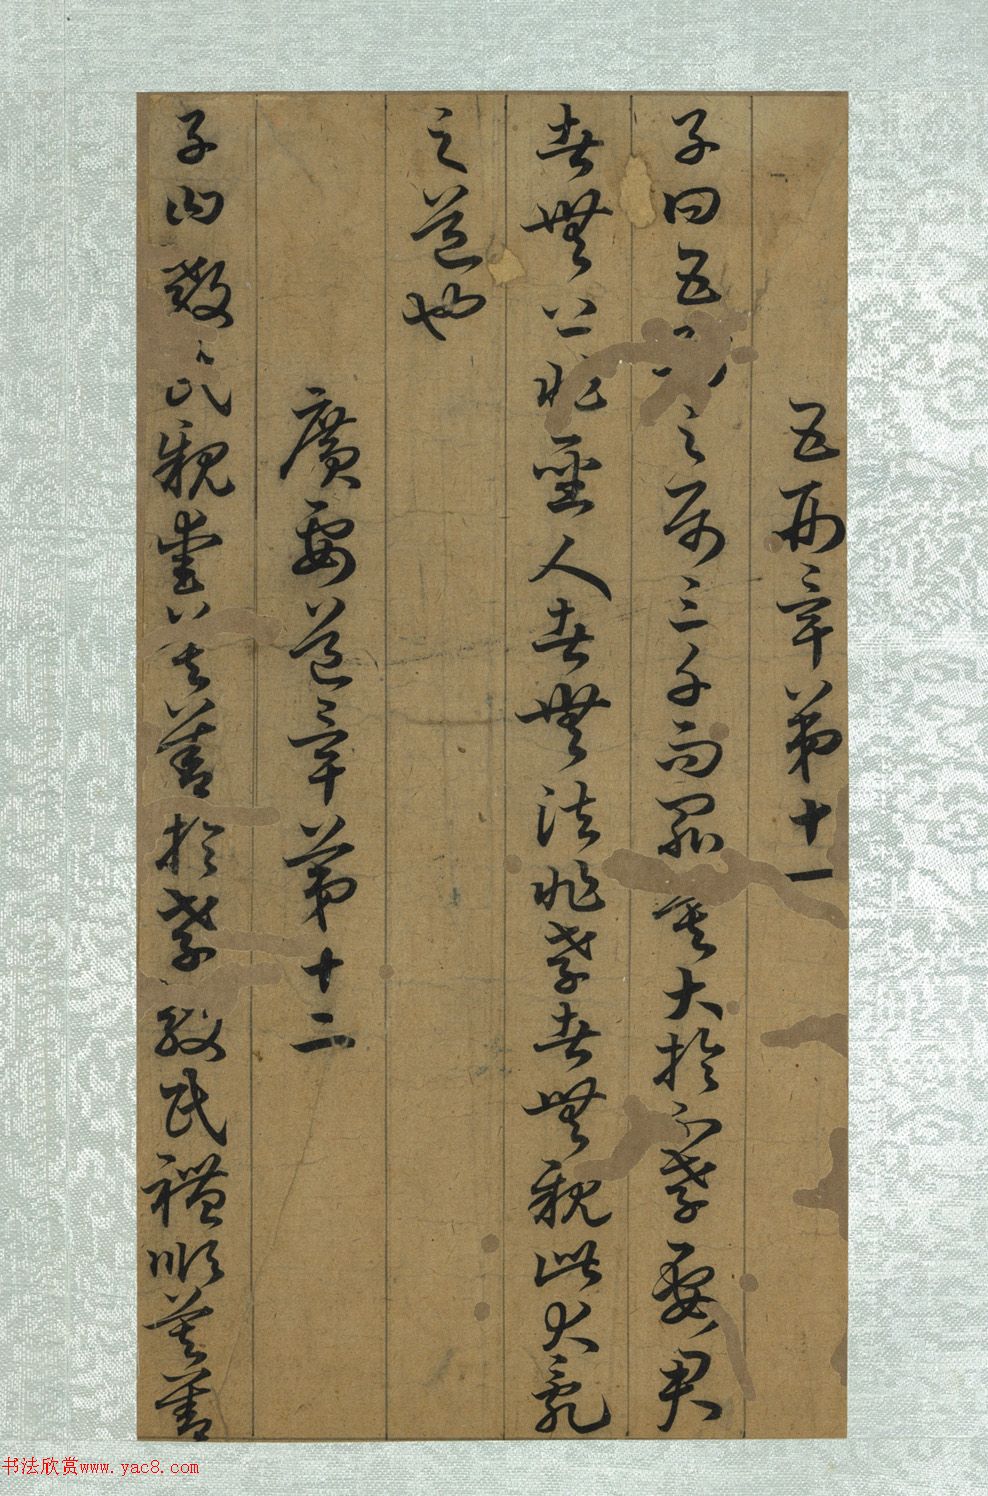 五刑章第十一
子曰五刑之属三千而罪莫大於不孝要君
者無上非聖人者無法非孝者無親此大亂
之道也
廣要道章第十二
子曰教民親愛莫善於孝教民禮順莫善
书法欣赏www.yac8.com